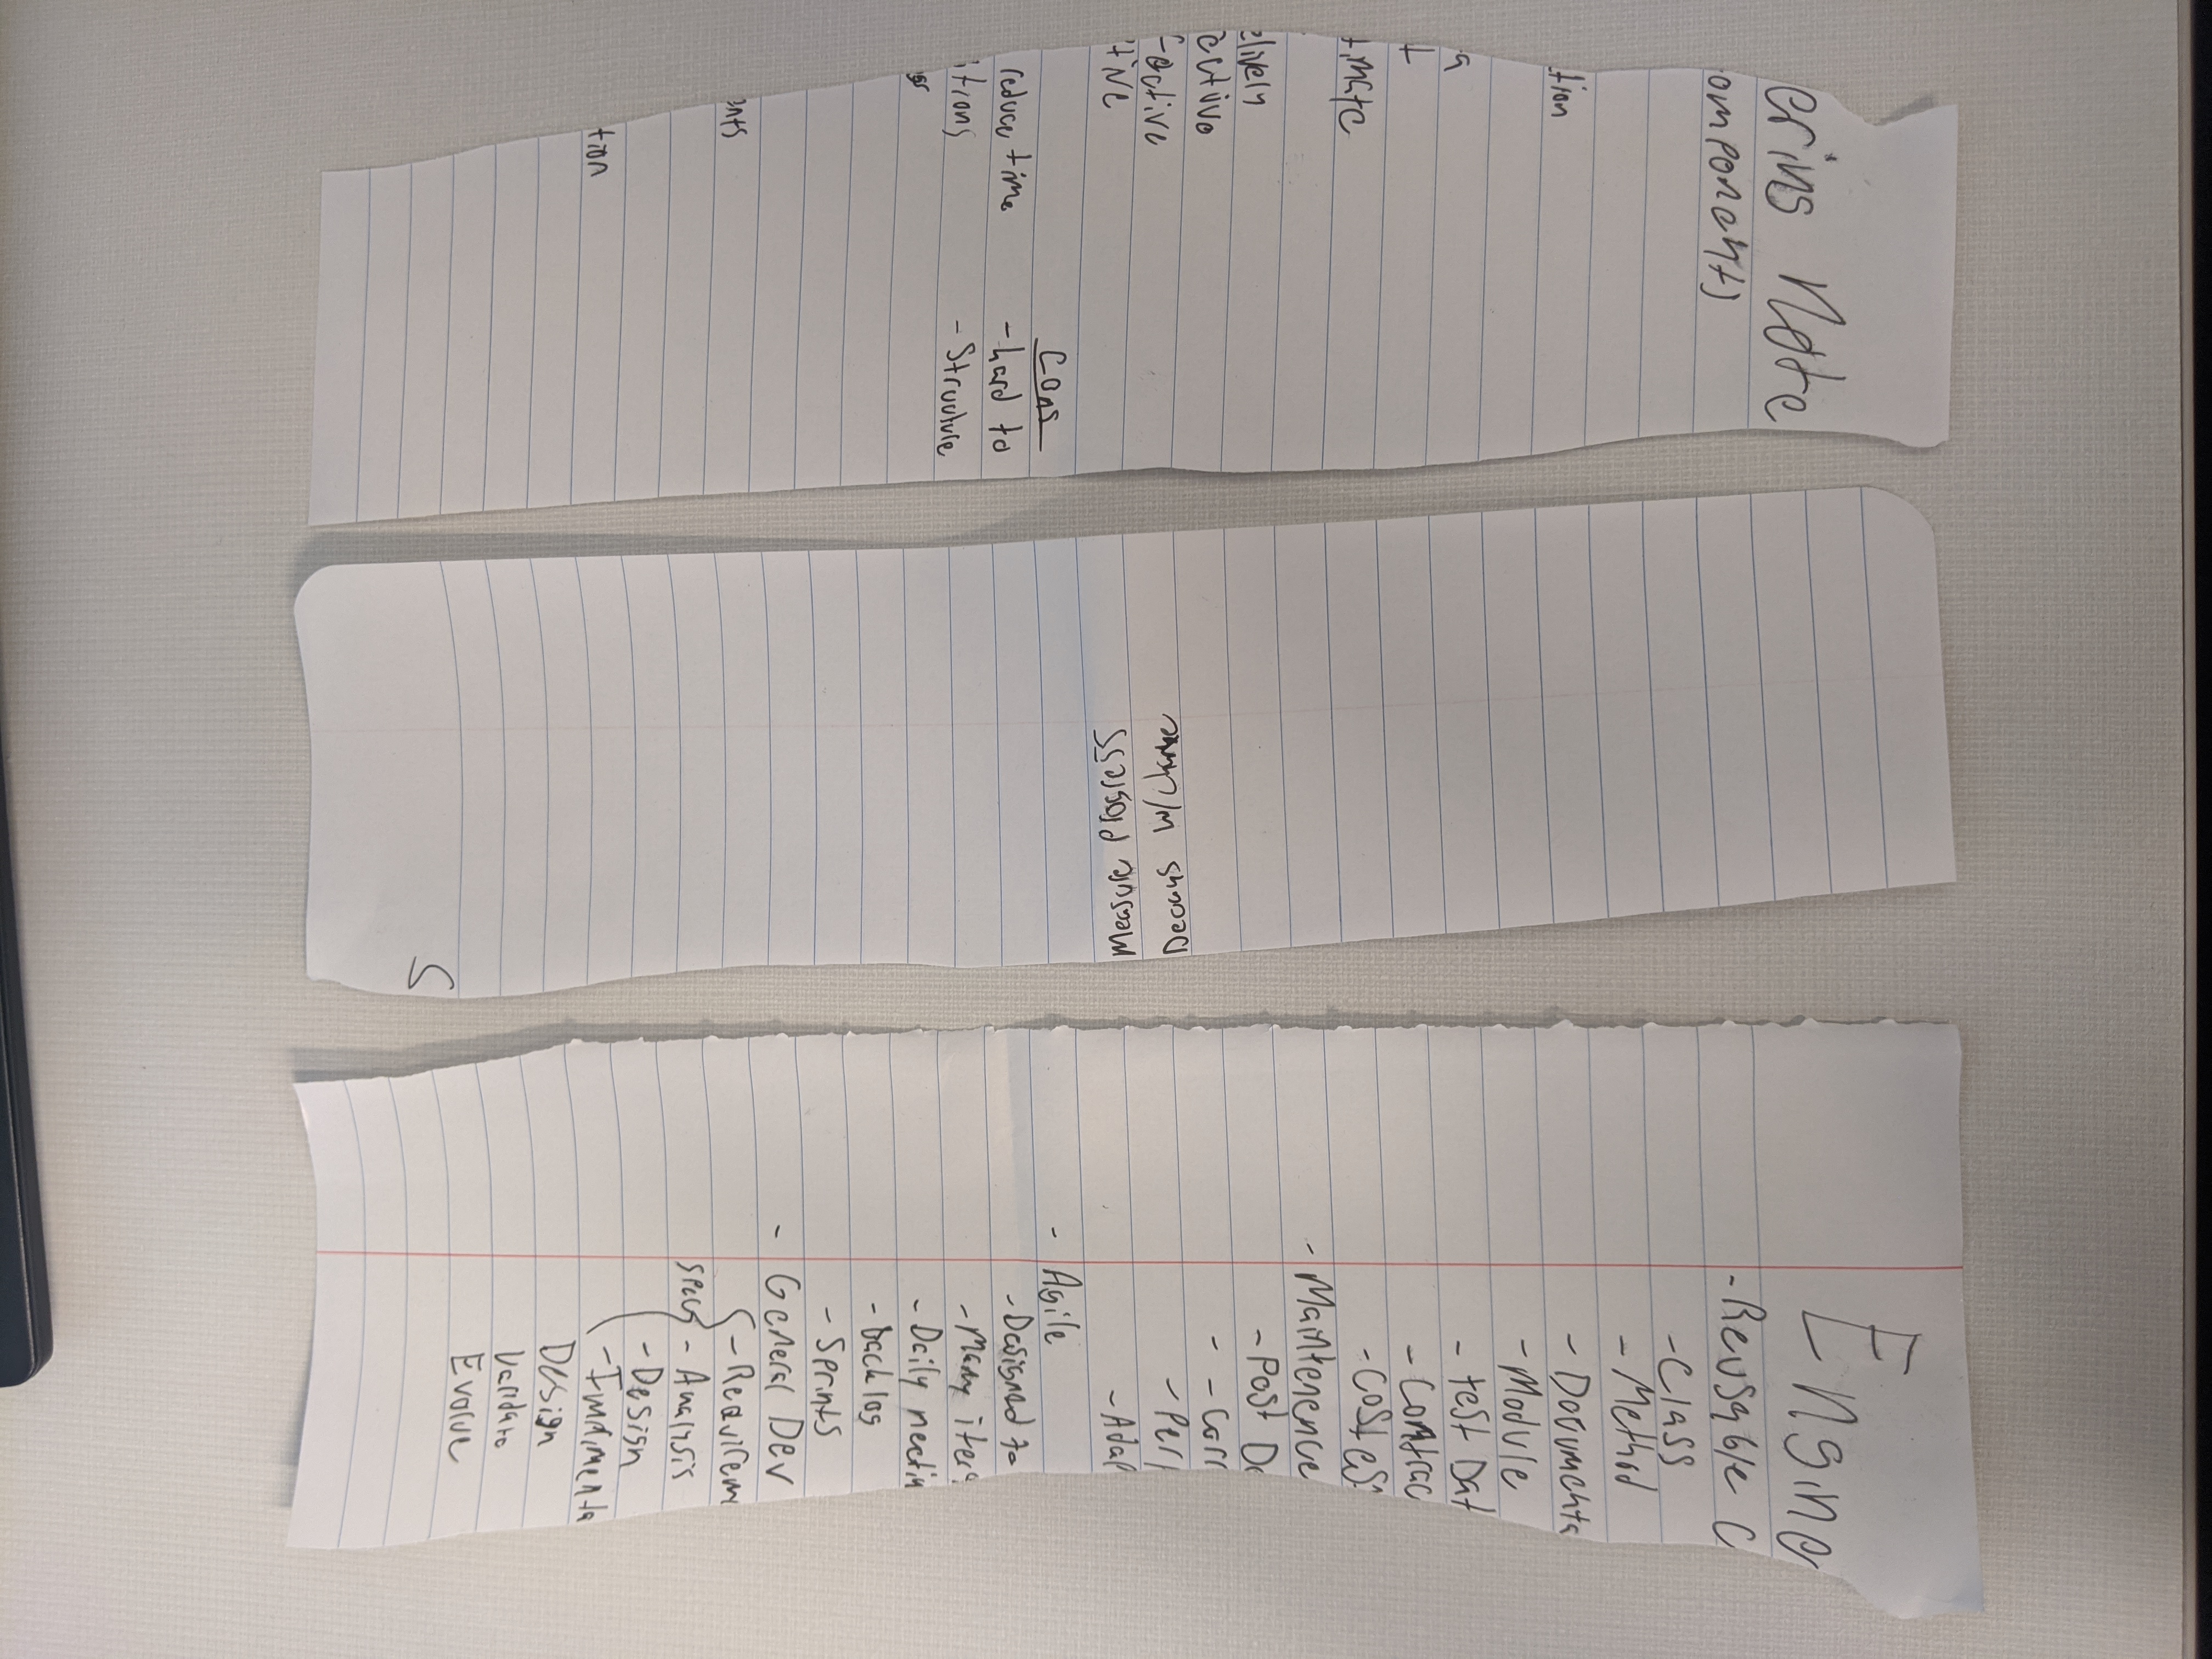 Engine
-Reusable C
-Class
-Method
-Documenta
-Module
-test Dat
-Contrac
-Cost est
- Maintenence
-Post De
- - Corr
-Perf
-Adap
- Agile
-Designed to
-Many itera
-Daily meetin
-backlog
-Sprints
- General Dev
-Requirem
Specs -Analysis
-Design
-Implimenta
Design
Validate
Evolve
S
Measure Progress
w/change
ering Note
omponents
tion
a
t
timate
ective
tive
Cons
reduce time -hard to
tions -structure
gs
ents
tion